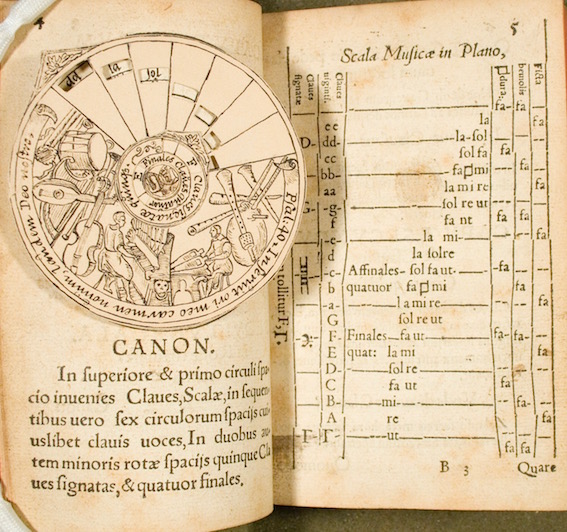 4
dd
la
sol
Finales Claues
Psal 40. Immisit in os meo carmen nouum,
CANON.
In superiore & primo circuli spa
cio inuenies Claues, Scalæ, in sequen
tibus uero sex circulorum spacijs cu
uslibet clauis uoces, In duobus au
tem minoris rotæ spacijs quinque Cla
ues signatas, & quatuor finales.
5
Scala Musicæ in Plano,
Claues signatæ
Claues uiginti.
♮dura.
bemolis
Ficta
ee la
D- dd- la-sol
cc sol fa
bb- fa♮mi
aa la mi re
g- sol re ut
f fa ut
-e- la mi-
d la solre
c Affinales- sol fa ut-
b quatuor fa♮mi
-a- la mi re
G sol re ut
F- Finales fa ut
E quat: la mi
D- sol re
C fa ut
B- mi
A re
Γ- Γ- ut
fa fa fa
tollitur F, Γ
B 3 Quare